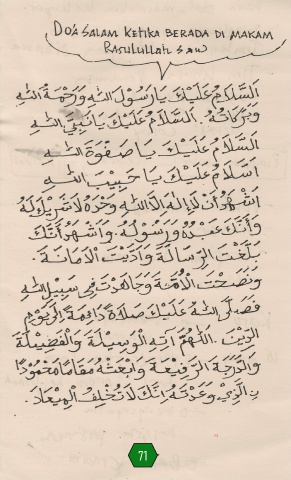 DO'A SALAM KETIKA BERADA DI MAKAM
RASULULLAH SAW
السَّلَامُ عَلَيْكَ يَا رَسُوْلَ اللهِ وَرَحْمَةُ اللهِ
وَبَرَكَاتُهُ. السَّلَامُ عَلَيْكَ يَا نَبِيَّ اللهِ
السَّلَامُ عَلَيْكَ يَا صَفْوَةَ اللهِ
السَّلَامُ عَلَيْكَ يَا حَبِيْبَ اللهِ
اَشْهَدُ اَنْ لَا اِلٰهَ اِلَّا اللهُ وَحْدَهُ لَا شَرِيْكَ لَهُ
وَأَنَّكَ عَبْدُهُ وَرَسُوْلُهُ. وَاَشْهَدُ اَنَّكَ
بَلَّغْتَ الرِّسَالَةَ وَاَدَّيْتَ الْاَمَانَةَ.
وَنَصَحْتَ الْاُمَّةَ وَجَاهَدْتَ فِي سَبِيْلِ اللهِ
فَصَلَّى اللهُ عَلَيْكَ صَلَاةً دَائِمَةً اِلَى يَوْمِ
الدِّيْنِ. اَللّٰهُمَّ اٰتِهِ الْوَسِيْلَةَ وَالْفَضِيْلَةَ
وَالدَّرَجَةَ الرَّفِيْعَةَ وَابْعَثْهُ مَقَامًا مَحْمُوْدًا
نِ الَّذِيْ وَعَدْتَهُ اِنَّكَ لَا تُخْلِفُ الْمِيْعَادَ.
71